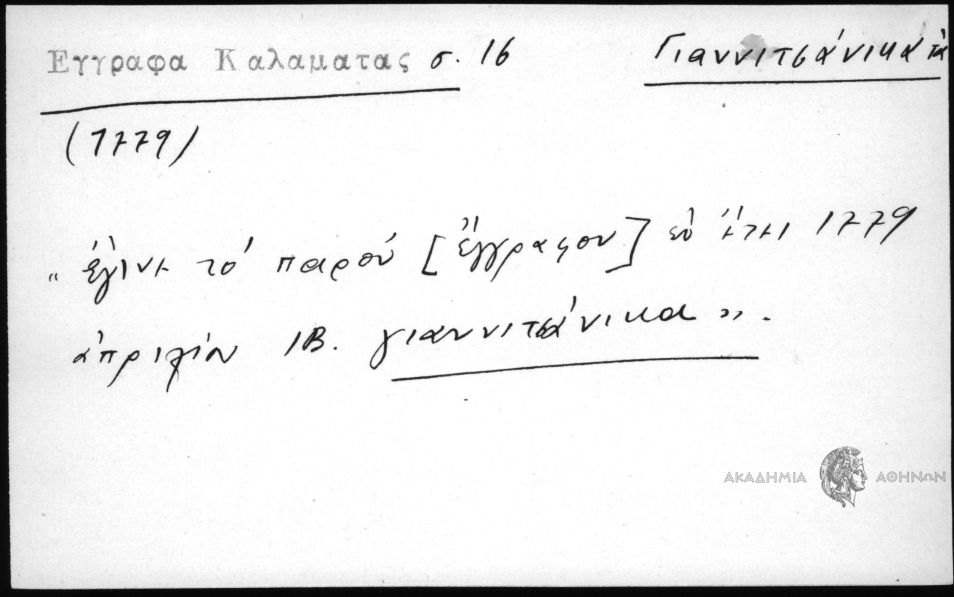 Εγγραφα Καλαματας σ. 16 Γιαννιτσάνικα τὰ
(1779)
"ἐγινε τὸ παρόν [ἔγγραφον] ἐν ἔτει 1779
ἀπριλίου ΙΒ. γιαννιτσάνικα».
ΑΚΑΔΗΜΙΑ ΑΘΗΝΩΝ